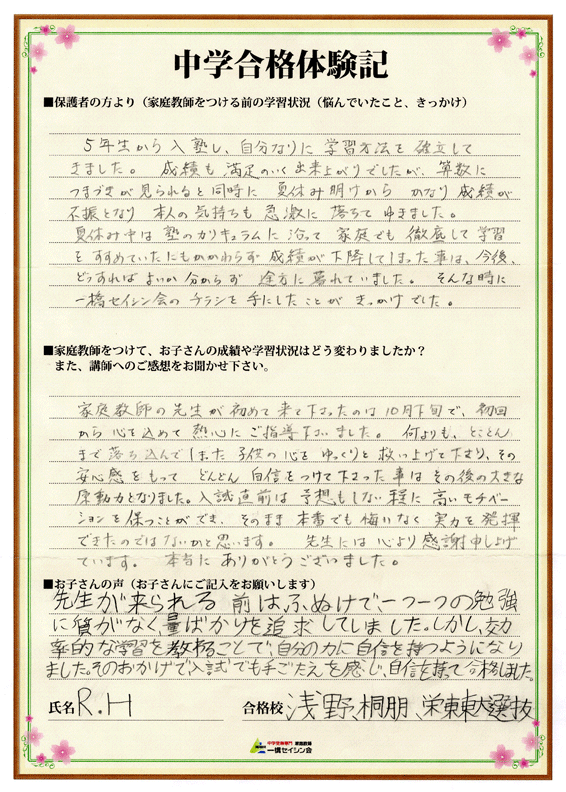 中学合格体験記
■保護者の方より（家庭教師をつける前の学習状況（悩んでいたこと、きっかけ）
5年生から入塾し、自分なりに学習方法を確立して
きました。成績も満足のいく出来上がりでしたが、算数に
つまづきが見られると同時に夏休み明けからかなり成績が
不振となり本人の気持ちも急激に落ちてゆきました。
夏休み中は塾のカリキュラムに沿って家庭でも徹底して学習
をすすめていたにもかかわらず成績が下降してしまった事は、今後、
どうすればよいか分からず途方に暮れていました。そんな時に
一橋セイシン会のチラシを手にしたことがきっかけでした。
■家庭教師をつけて、お子さんの成績や学習状況はどう変わりましたか？
また、講師へのご感想をお聞かせ下さい。
家庭教師の先生が初めて来て下さったのは10月下旬で、初回
から心を込めて熱心にご指導下さいました。何よりも、とことん
まで落ち込んでしまった子供の心をゆっくりと救い上げて下さり、その
安心感をもってどんどん自信をつけて下さった事はその後の大きな
原動力となりました。入試直前は予想もしない程に高いモチベー
ションを保つことができ、そのまま本番でも悔いなく実力を発揮
できたのではないかと思います。先生には心より感謝申し上げ
ています。本当にありがとうございました。
■お子さんの声（お子さんにご記入をお願いします）
先生が来られる前はふぬけで、一つ一つの勉強
に質がなく、量ばかりを追求していました。しかし、効
率的な学習を教わることで、自分の力に自信を持つようになり
ました。そのおかげで入試でも手ごたえを感じ、自信を持って合格しました。
氏名 R.H 合格校 浅野、桐朋、栄東東大選抜
中学受験専門 家庭教師
一橋セイシン会